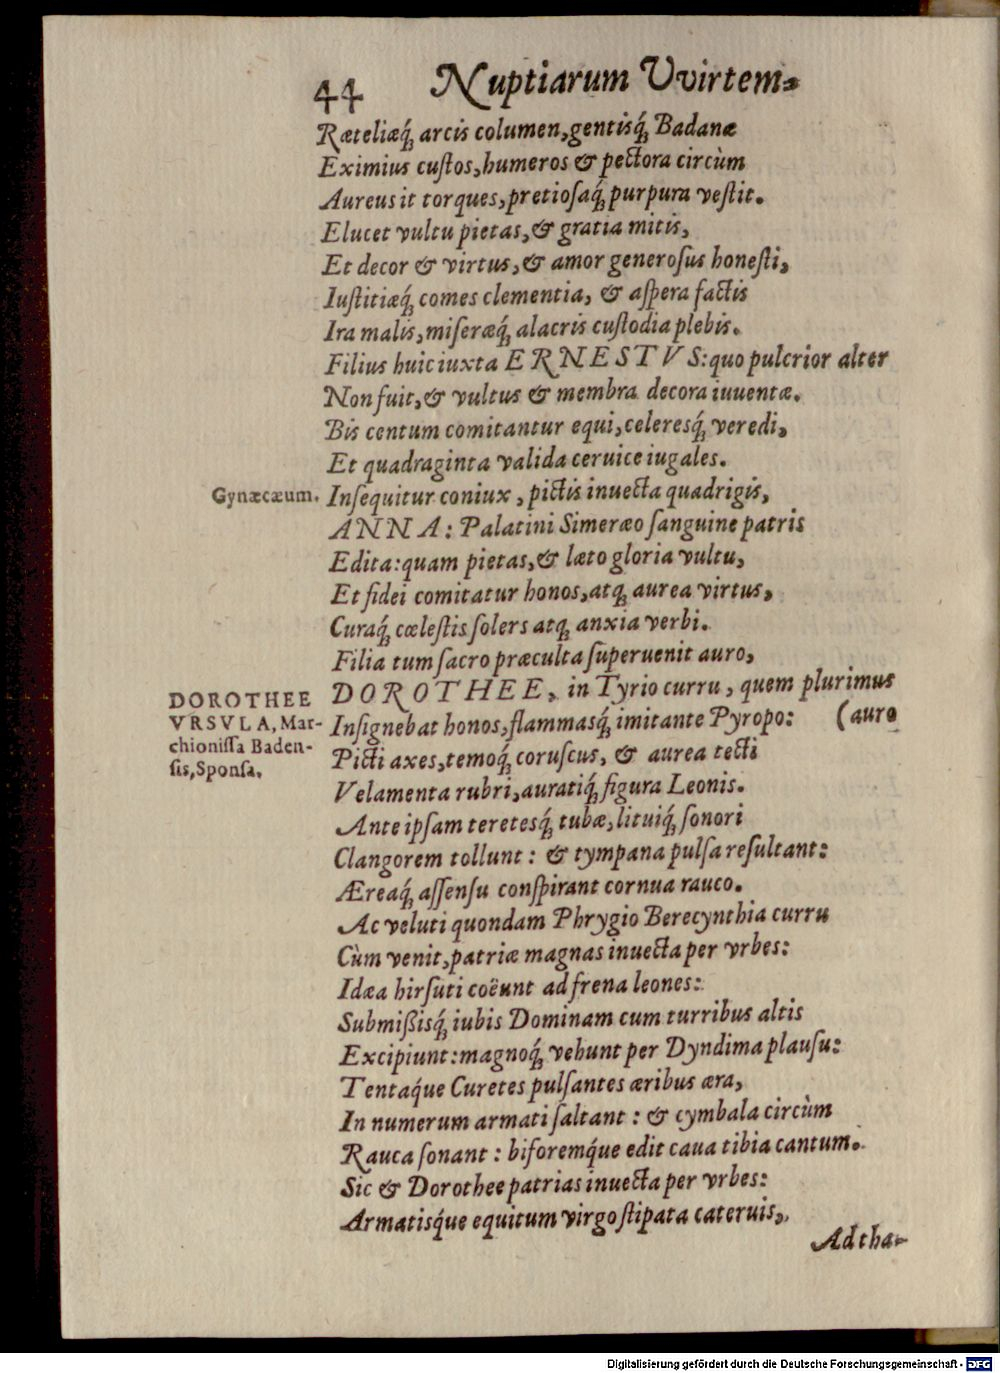 44 Nuptiarum Vvirtem-
Ræteliæq́ꝫ arcis columen, gentisq́ꝫ Badanæ
Eximius cuſtos, humeros & pectora circùm
Aureus it torques, pretioſaq́ꝫ purpura veſtit.
Elucet vultu pietas, & gratia mitis,
Et decor & virtus, & amor generoſus honeſti,
Iuſtitiæq́ꝫ comes clementia, & aſpera factis
Ira malis, miſeræq́ꝫ alacris cuſtodia plebis.
Filius huic iuxta ERNESTVS: quo pulcrior alter
Non fuit, & vultus & membra decora iuuentæ.
Bis centum comitantur equi, celeresq́ꝫ veredi,
Et quadraginta valida ceruice iugales.
Gynæcæum. Inſequitur coniux, pictis inuecta quadrigis,
ANNA: Palatini Simeræo ſanguine patris
Edita: quam pietas, & læto gloria vultu,
Et fidei comitatur honos, atqꝫ aurea virtus,
Curaq́ꝫ cœleſtis ſolers atqꝫ anxia verbi.
Filia tum ſacro præculta ſuperuenit auro,
DOROTHEE, in Tyrio curru, quem plurimus
(auro
Inſignebat honos, flammasq́ꝫ imitante Pyropo:
DOROTHEE
VRSVLA, Mar-
chioniſſa Baden-
ſis, Sponſa.
Picti axes, temoq́ꝫ coruſcus, & aurea tecti
Velamenta rubri, auratiq́ꝫ figura Leonis.
Ante ipſam teretesq́ꝫ tubæ, lituiq́ꝫ ſonori
Clangorem tollunt: & tympana pulſa reſultant:
Æreaq́ꝫ aſſenſu conſpirant cornua rauco.
Ac veluti quondam Phrygio Berecynthia curru
Cùm venit, patriæ magnas inuecta per vrbes:
Idæa hirſuti coëunt ad frena leones:
Submißisq́ꝫ iubis Dominam cum turribus altis
Excipiunt: magnoq́ꝫ vehunt per Dyndima plauſu:
Tentaq́ue Curetes pulſantes æribus æra,
In numerum armati ſaltant: & cymbala circùm
Rauca ſonant: biforemq́ue edit caua tibia cantum.
Sic & Dorothee patrias inuecta per vrbes:
Armatisq́ue equitum virgo ſtipata cateruis,
Ad tha-
Digitalisierung gefördert durch die Deutsche Forschungsgemeinschaft - DFG